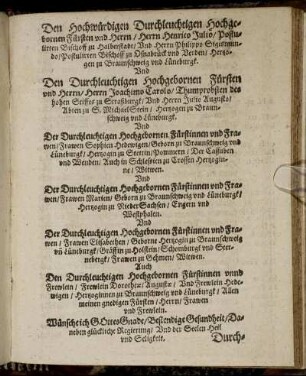 Den Hochwürdigen Durchleuchtigen Hochge-
bornen Fürsten vnd Herrn / Herrn Henrico Julio / Postu-
lirten Bischoff zu Halberstadt / Vnd Herrn Philippo Sigismun-
do / Postulirten Bischoff zu Oßnabrück vnd Verden / Hertzo-
gen zu Braunschweig vnd Lüneburg.
Vnd
Den Durchleuchtigen Hochgebornen Fürsten
vnd Herrn / Herrn Joachimo Carolo / Thumprobsten des
hohen Stifftes zu Straßburg / Vnd Herrn Julio Augusto /
Abten zu S. Michael Stein / Hertzogen zu Braun-
schweig vnd Lüneburg.
Vnd
Der Durchleuchtigen Hochgebornen Fürstinnen vnd Fra-
wen / Frawen Sophien Hedewigen / Geborn zu Braunschweig vnd
Lüneburg / Hertzogin zu Stettin / Pommern / Der Cassuben
vnd Wenden / Auch in Schlesien zu Crossen Hertzogin-
ne / Witwen.
Vnd
Der Durchleuchtigen Hochgebornen Fürstinnen vnd Fra-
wen / Frawen Marien / Geborn zu Braunschweig vnd Lüneburg /
Hertzogin zu NiederSachsen / Engern vnd
Westphalen.
Vnd
Der Durchleuchtigen Hochgebornen Fürstinnen vnd Fra-
wen / Frawen Elisabethen / Geborne Hertzogin zu Braunschweig
vñ Lüneburg / Gräffin zu Holstein / Schomburg vnd Ster-
neberg / Frawen zu Gehmen / Witwen.
Auch
Den Durchleuchtigen Hochgebornen Fürstinnen vnnd
Frewlein / Frewlein Dorotheen / Augusten / Vnd Frewlein Hede-
wigen / Hertzoginnen zu Braunschweig vnd Lüneburg / Allen
meinen gnedigen Fürsten / Herrn / Frawen
vnd Frewlein.
Wünsche ich Gottes Gnade / Bestendige Gesundheit / Da-
neben glückliche Regierung / Vnd der Seelen Heil
vnd Seligkeit.
Durch-